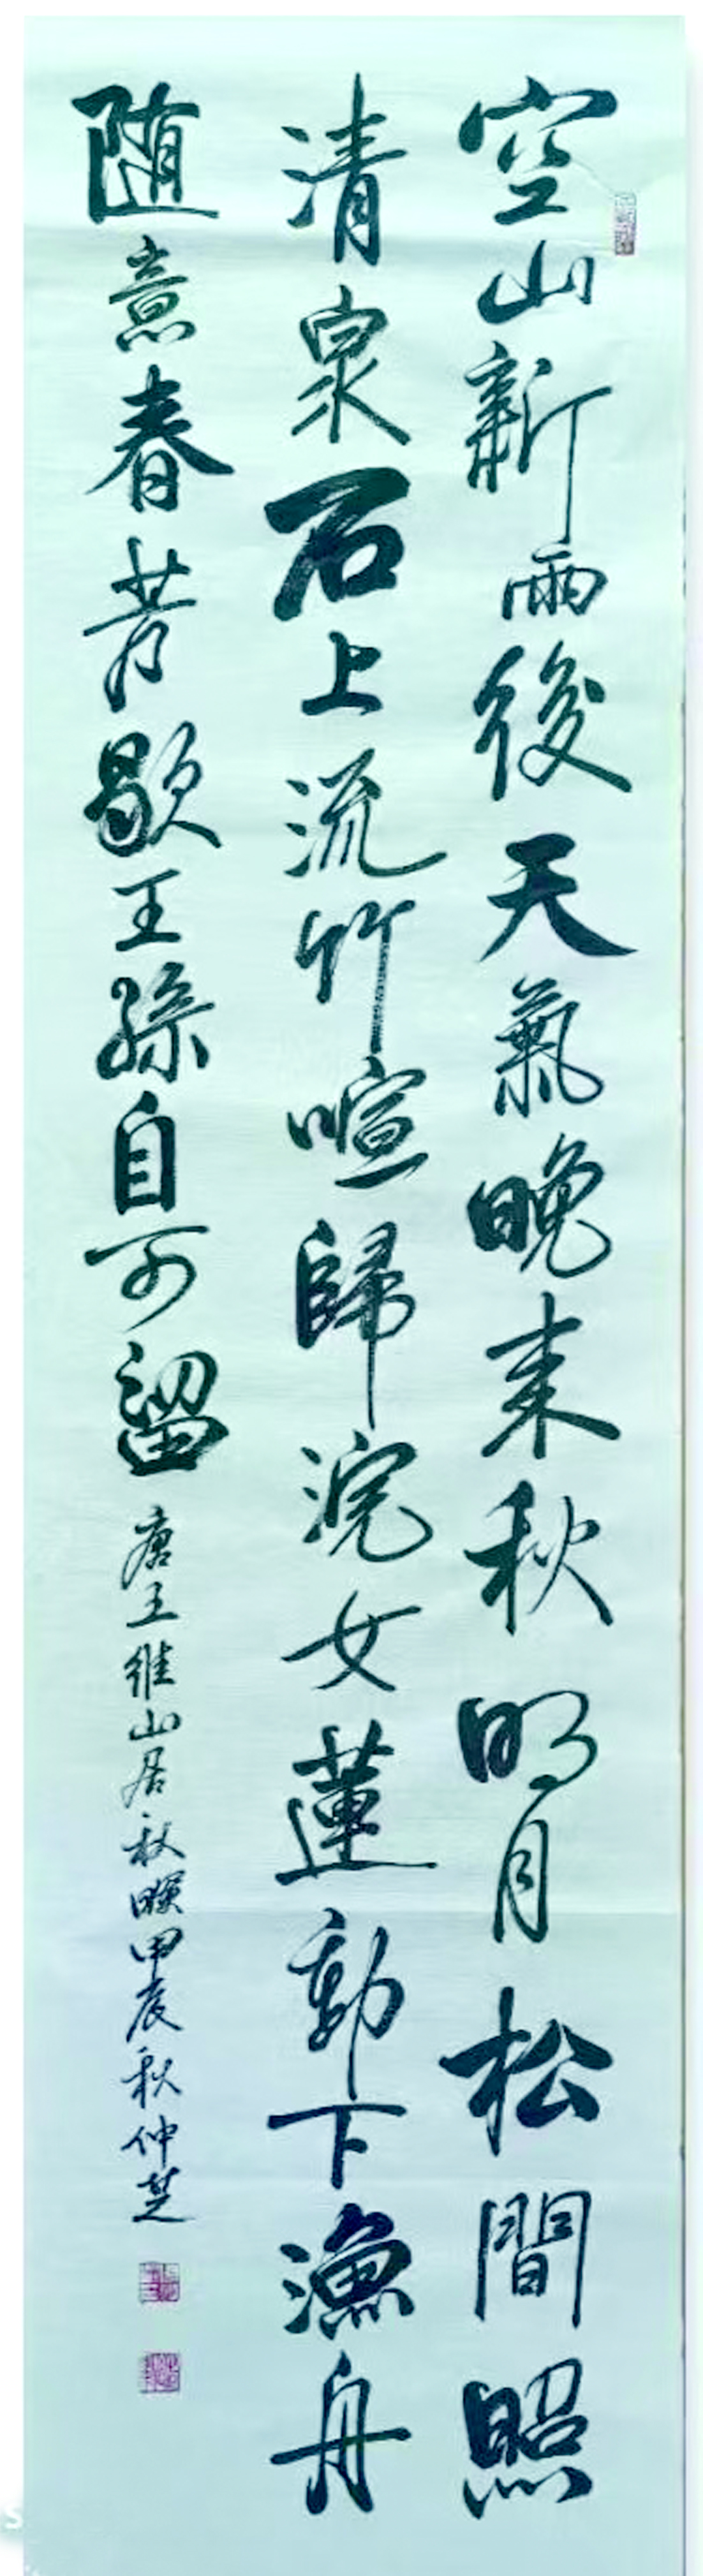 空山新雨後天氣晚来秋明月松間照
清泉石上流竹喧歸浣女蓮動下漁舟
随意春芳歇王孫自可留唐王维山居秋暝甲辰秋仲芝